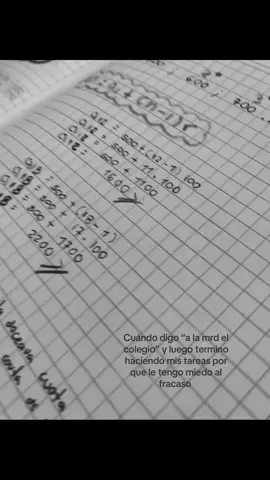 2°
600
700
a12 = 500 + (12 - 1) 100
a12 = 500 + 11 . 100
a12 = 500 + 1100
1600
a18 = 500 + (18 - 1)
a18 = 500 + 17 . 100
500 + 1700
2200
cuota
Cuándo digo “a la mrd el
colegio” y luego termino
haciendo mis tareas por
que le tengo miedo al
fracaso